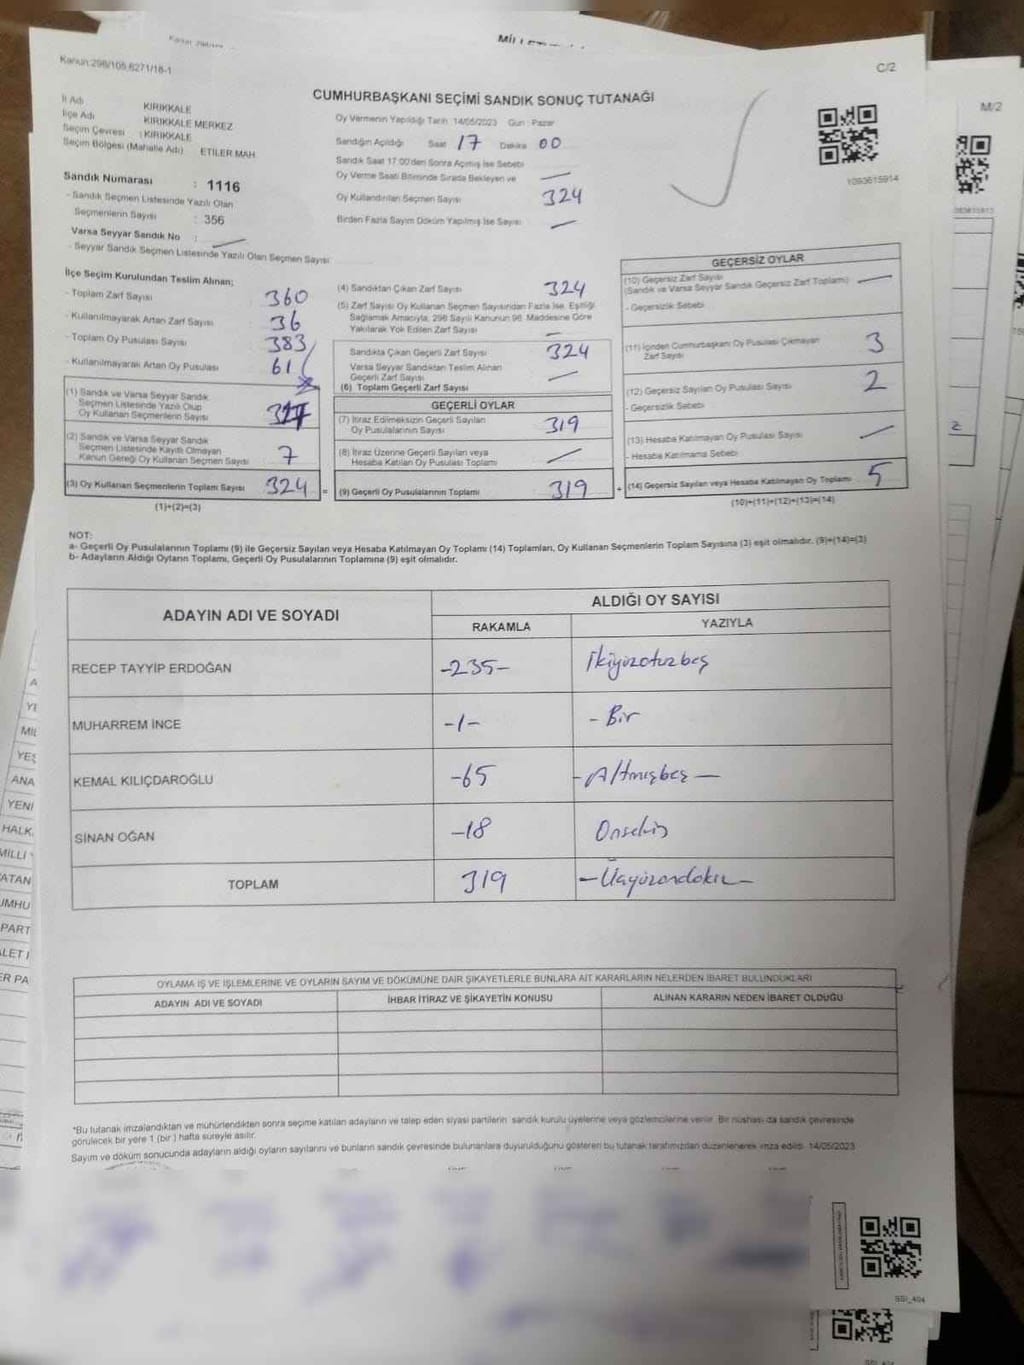 Kanun:298/105,6271/18-1
C/2
CUMHURBAŞKANI SEÇİMİ SANDIK SONUÇ TUTANAĞI
İl Adı KIRIKKALE
İlçe Adı KIRIKKALE MERKEZ
Seçim Çevresi : KIRIKKALE
Seçim Bölgesi (Mahalle Adı) ETİLER MAH.
Sandık Numarası : 1116
- Sandık Seçmen Listesinde Yazılı Olan
Seçmenlerin Sayısı : 356
Varsa Seyyar Sandık No :
- Seyyar Sandık Seçmen Listesinde Yazılı Olan Seçmen Sayısı
Oy Vermenin Yapıldığı Tarih 14/05/2023 Gün : Pazar
Sandığın Açıldığı Saat 17 Dakika 00
Sandık Saat 17:00'den Sonra Açılmış İse Sebebi
Oy Verme Saati Bitiminde Sırada Bekleyen ve
Oy Kullandırılan Seçmen Sayısı 324
Birden Fazla Sayım Döküm Yapılmış İse Sayısı
Y093615914
M/2
İlçe Seçim Kurulundan Teslim Alınan;
- Toplam Zarf Sayısı 360
- Kullanılmayarak Artan Zarf Sayısı 36
- Toplam Oy Pusulası Sayısı 383
- Kullanılmayarak Artan Oy Pusulası 61
(1) Sandık ve Varsa Seyyar Sandık
Seçmen Listesinde Yazılı Olup
Oy Kullanan Seçmenlerin Sayısı
(2) Sandık ve Varsa Seyyar Sandık
Seçmen Listesinde Kayıtlı Olmayan
Kanun Gereği Oy Kullanan Seçmen Sayısı 7
(3) Oy Kullanan Seçmenlerin Toplam Sayısı 324
(1)+(2)=(3)
(4) Sandıktan Çıkan Zarf Sayısı 324
(5) Zarf Sayısı Oy Kullanan Seçmen Sayısından Fazla İse, Eşitliği
Sağlamak Amacıyla, 298 Sayılı Kanunun 98. Maddesine Göre
Yakılarak Yok Edilen Zarf Sayısı
Sandıkta Çıkan Geçerli Zarf Sayısı 324
Varsa Seyyar Sandıktan Teslim Alınan
Geçerli Zarf Sayısı
(6) Toplam Geçerli Zarf Sayısı
GEÇERLİ OYLAR
(7) İtiraz Edilmeksizin Geçerli Sayılan
Oy Pusulalarının Sayısı 319
(8) İtiraz Üzerine Geçerli Sayılan veya
Hesaba Katılan Oy Pusulası Toplamı
= (9) Geçerli Oy Pusulalarının Toplamı 319
GEÇERSİZ OYLAR
(10) Geçersiz Zarf Sayısı
(Sandık ve Varsa Seyyar Sandık Geçersiz Zarf Toplamı)
- Geçersizlik Sebebi
(11) İçinden Cumhurbaşkanı Oy Pusulası Çıkmayan
Zarf Sayısı 3
(12) Geçersiz Sayılan Oy Pusulası Sayısı 2
- Geçersizlik Sebebi
(13) Hesaba Katılmayan Oy Pusulası Sayısı
- Hesaba Katılmama Sebebi
+ (14) Geçersiz Sayılan veya Hesaba Katılmayan Oy Toplamı 5
(10)+(11)+(12)+(13)=(14)
NOT:
a- Geçerli Oy Pusulalarının Toplamı (9) ile Geçersiz Sayılan veya Hesaba Katılmayan Oy Toplamı (14) Toplamları, Oy Kullanan Seçmenlerin Toplam Sayısına (3) eşit olmalıdır. (9)+(14)=(3)
b- Adayların Aldığı Oyların Toplamı, Geçerli Oy Pusulalarının Toplamına (9) eşit olmalıdır.
ADAYIN ADI VE SOYADI
ALDIĞI OY SAYISI
RAKAMLA YAZIYLA
RECEP TAYYİP ERDOĞAN -235- İkiyüzotuzbeş
MUHARREM İNCE -1- - Bir
KEMAL KILIÇDAROĞLU -65 - Altmışbeş -
SİNAN OĞAN -18 Onsekiz
TOPLAM 319 - Üçyüzondokuz -
OYLAMA İŞ VE İŞLEMLERİNE VE OYLARIN SAYIM VE DÖKÜMÜNE DAİR ŞİKAYETLERLE BUNLARA AİT KARARLARIN NELERDEN İBARET BULUNDUKLARI
ADAYIN ADI VE SOYADI İHBAR İTİRAZ VE ŞİKAYETİN KONUSU ALINAN KARARIN NEDEN İBARET OLDUĞU
*Bu tutanak imzalandıktan ve mühürlendikten sonra seçime katılan adayların ve talep eden siyasi partilerin sandık kurulu üyelerine veya gözlemcilerine verilir. Bir nüshası da sandık çevresinde
görülecek bir yere 1 (bir) hafta süreyle asılır.
Sayım ve döküm sonucunda adayların aldığı oyların sayılarını ve bunların sandık çevresinde bulunanlara duyurulduğunu gösteren bu tutanak tarafımızdan düzenlenerek imza edildi. 14/05/2023
SSI_404